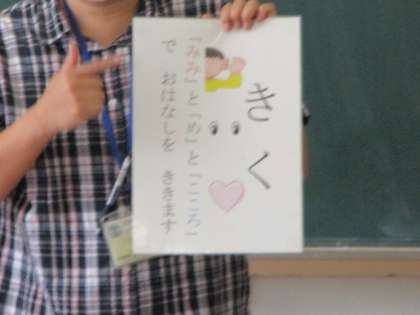 きく
「みみ」と「め」と「こころ」
で おはなしを ききます